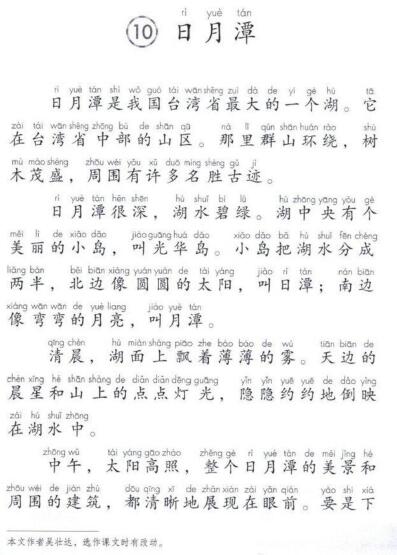 rì yuè tán
⑩ 日月潭
rì yuè tán shì wǒ guó tái wān shěng zuì dà de yí gè hú tā
日月潭是我国台湾省最大的一个湖。它
zài tái wān shěng zhōng bù de shān qū nà lǐ qún shān huán rào shù
在台湾省中部的山区。那里群山环绕，树
mù mào shèng zhōu wéi yǒu xǔ duō míng shèng gǔ jì
木茂盛，周围有许多名胜古迹。
rì yuè tán hěn shēn hú shuǐ bì lǜ hú zhōng yāng yǒu gè
日月潭很深，湖水碧绿。湖中央有个
měi lì de xiǎo dǎo jiào guāng huá dǎo xiǎo dǎo bǎ hú shuǐ fēn chéng
美丽的小岛，叫光华岛。小岛把湖水分成
liǎng bàn běi biān xiàng yuán yuán de tài yáng jiào rì tán nán biān
两半，北边像圆圆的太阳，叫日潭；南边
xiàng wān wān de yuè liang jiào yuè tán
像弯弯的月亮，叫月潭。
qīng chén hú miàn shàng piāo zhe báo báo de wù tiān biān de
清晨，湖面上飘着薄薄的雾。天边的
chén xīng hé shān shàng de diǎn diǎn dēng guāng yǐn yǐn yuē yuē de dào yìng
晨星和山上的点点灯光，隐隐约约地倒映
zài hú shuǐ zhōng
在湖水中。
zhōng wǔ tài yáng gāo zhào zhěng gè rì yuè tán de měi jǐng hé
中午，太阳高照，整个日月潭的美景和
zhōu wéi de jiàn zhù dōu qīng xī de zhǎn xiàn zài yǎn qián yào shi xià
周围的建筑，都清晰地展现在眼前。要是下
本文作者吴壮达，选作课文时有改动。